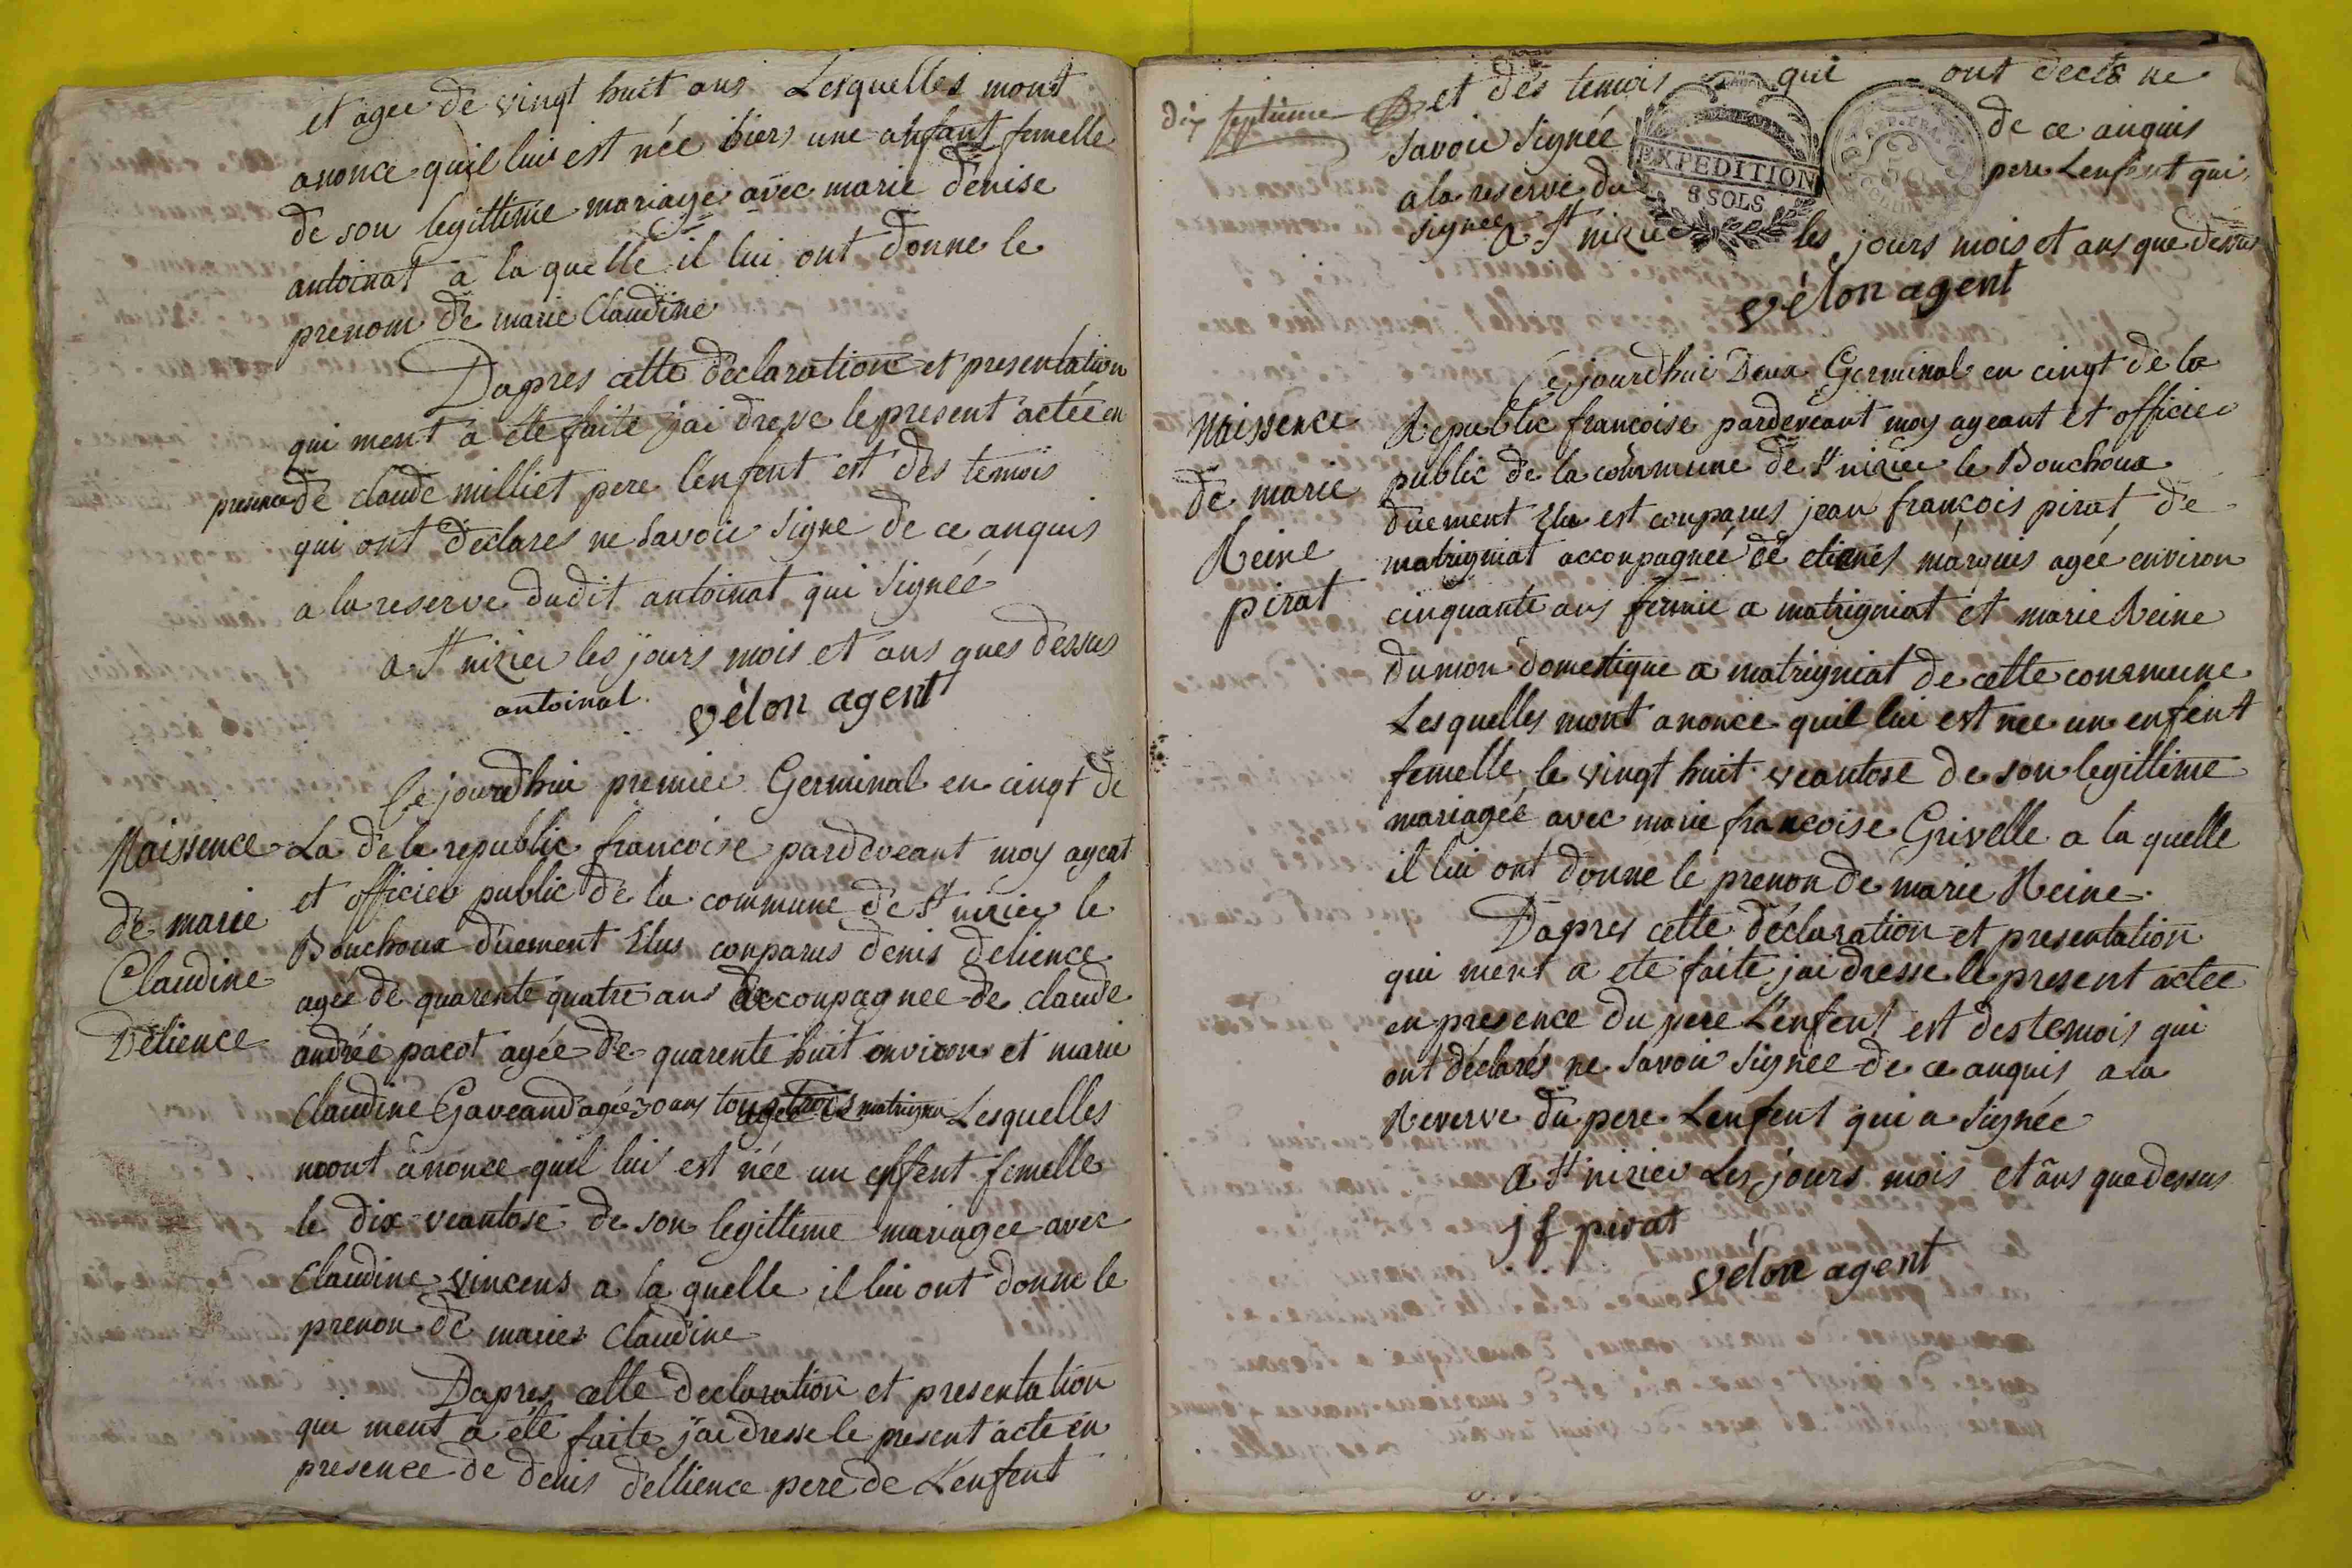 et agee de vingt huit ans Lesquelles mont
anonce quil lui est née hiers une anfant femelle
de son legittime mariage avec marie denise
antoinat a la quelle il lui ont donne le
prenom de marie Claudine
Dapres cette déclaration et presentation
qui ment a éte faite jai dresse le present actée en
presence de claude milliet pere lenfent est des temois
qui ont déclares ne savoir signe de ce anquis
a la reserve dudit antoinat qui signée
a St nizier les jours mois et ans ques dessus
antoinat vélon agent
Cejourdhui premier Germinal en cinqt de
Naissence
de marie
Claudine
Délience
La de la republic francoise pardeveant moy ageat
et officier public de la commune de St nizier le
Bouchoux duement Elus conparus denis delience
agee de quarente quatre ans acconpagnee de claude
andrée pacot agée de quarente huit environ et marie
Claudine Gaveand agée 30 ans tous trois matrignat Lesquelles
mont anonce quil lui est née un enffent femelle
le dix veantose de son legittime mariagee avec
Claudine vincens a la quelle il lui ont donne le
prenon de marie Claudine
Dapres cette declaration et presentation
qui ment a été faite jai dresse le present acte en
presence de denis dellience pere de Lenfent
dix septieme
et des temois qui ont decla ne
savoir signée de ce anquis
a la reserve du pere Lenfent qui
signee a St nizier les jours mois et ans que dessus
EXPEDITION
8 SOLS
REP. FRA
vélon agent
Cejourdhui Deux Germinal en cinqt de la
Naissence
de marie
Reine
pirat
Republic francoise pardeveant moy ageant et officier
public de la commune de St nizier le Bouchoux
duement Elu est conparus jean françois pirat de
matrigniat acconpagnée de etiennes marquis agée environ
cinquante ans fermie a matrigniat et marie Reine
dumon domestique a matrigniat de cette commune
Lesquelles mont anonce quil lui est nee un enfent
femelle le vingt huit veantose de son legittime
mariagée avec marie françoise Grivelle a la quelle
il lui ont donne le prenon de marie Reine
Dapres cette déclaration et presentation
qui ment a ete faite jai dresse le present actee
en presence du pere Lenfent est des temois qui
ont déclarés ne savoir signee de ce anquis a la
Reverve du pere Lenfent qui a signée
a St nizier Les jours mois et ans que dessus
j f pirat
vélon agent